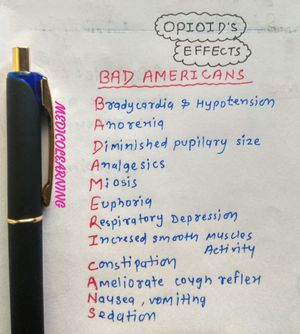 OPIOID'S
EFFECTS
BAD AMERICANS
Bradycardia & Hypotension
Anorenia
Diminished pupilary size
Analgesics
Miosis
Euphoria
Respiratory Depression
Incresed smooth muscles
Activity
Constipation
Ameliorate cough reflex
Naysea, vomiting
Sedation
MEDICOLEARNING